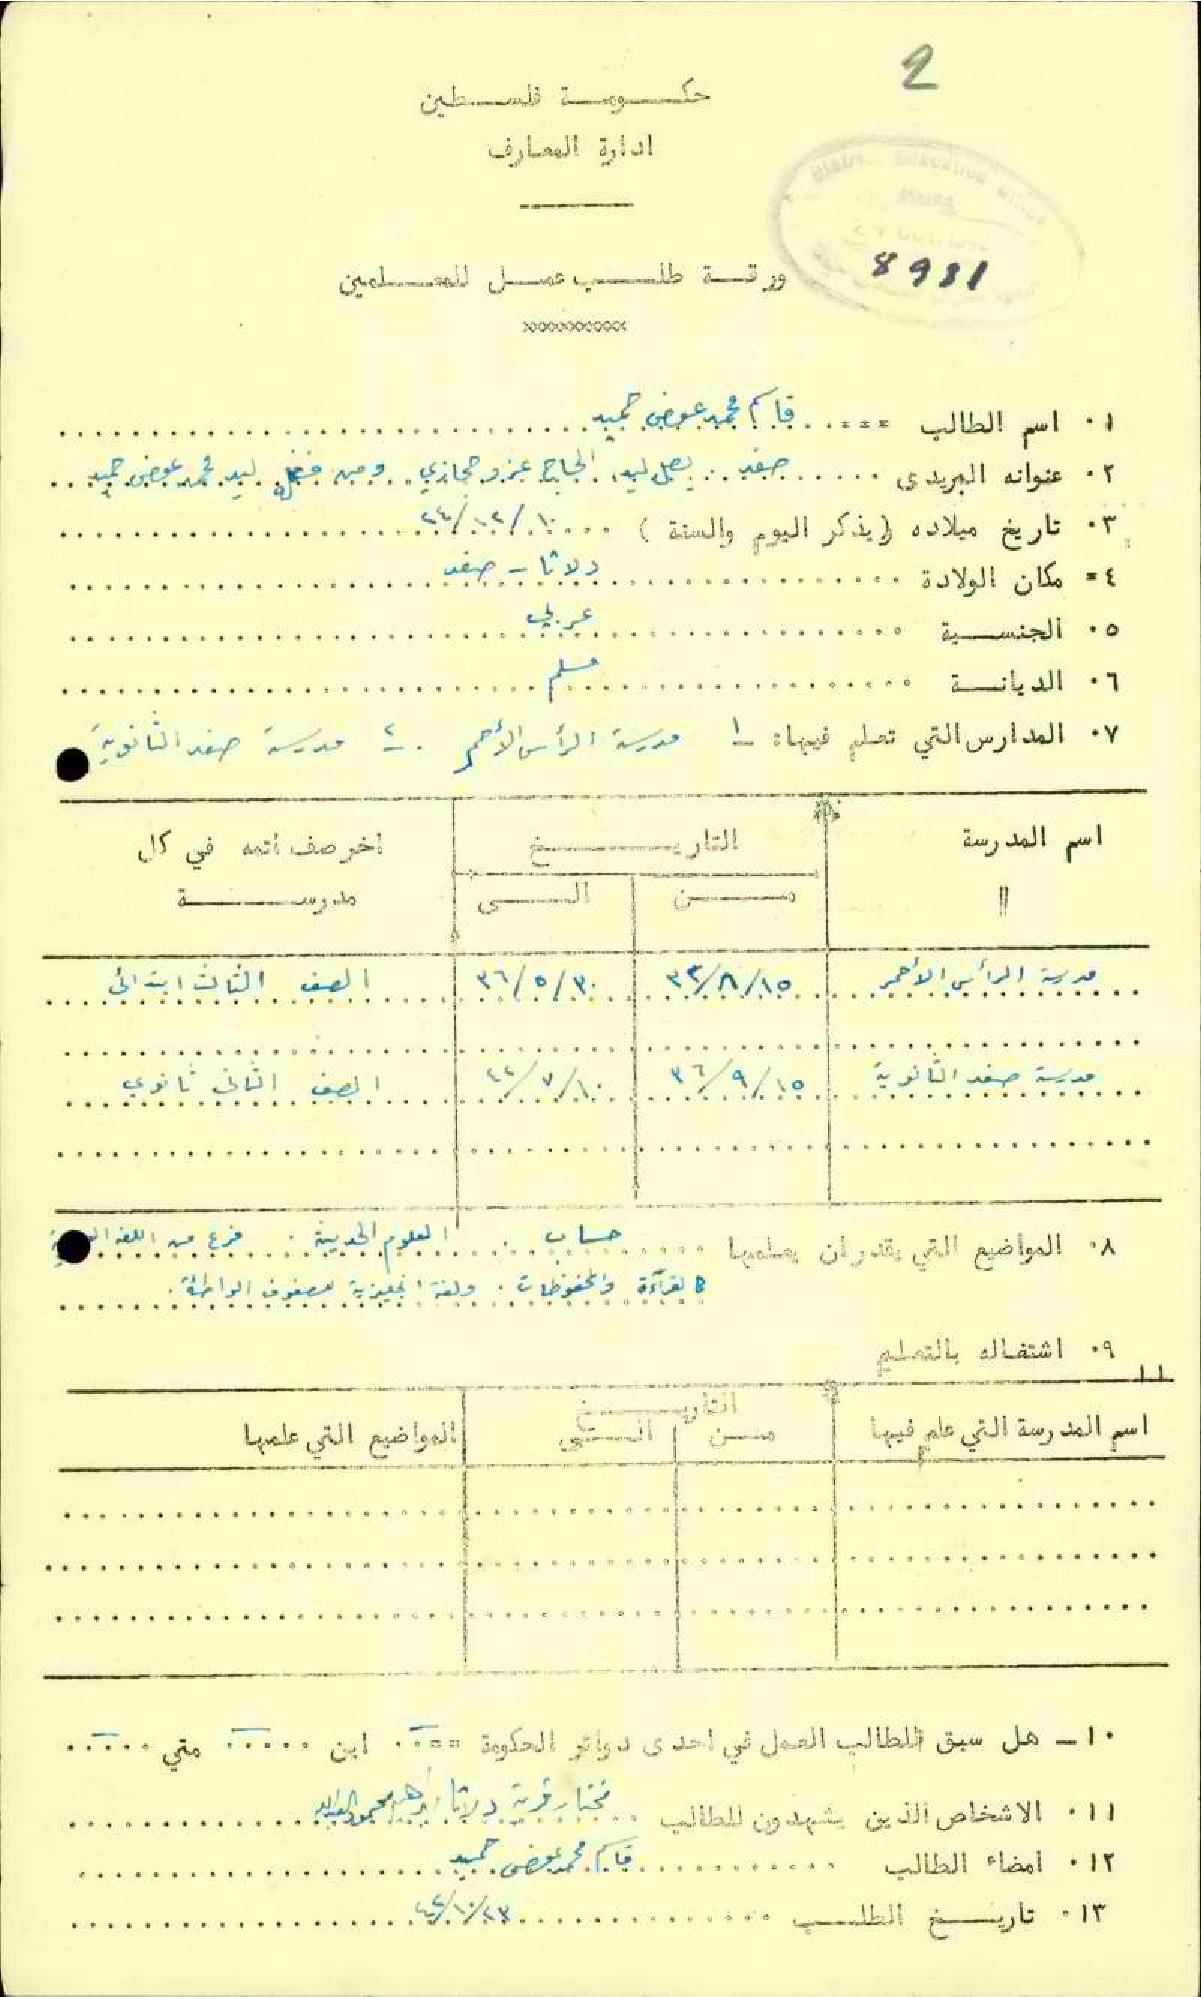 2
حكومة فلسطين
ادارة المعارف
8981
ورقة طلب عمل للمعلمين
١٠ اسم الطالب قاسم محمد عوض حميد
٢٠ عنوانه البريدى صفد يصل ليد الحاج عزو حجازي ومن فضله ليد محمد عوض حميد
٣٠ تاريخ ميلاده (يذكر اليوم والسنة) ١٠/١٢/٢٤
٤= مكان الولادة دلاثا - صفد
٥٠ الجنسية عربي
٦٠ الديانة مسلم
٧٠ المدارس التي تعلم فيها: ١ مدرسة الرأس الأحمر . ٢ مدرسة صفد الثانوية
اسم المدرسة التاريخ اخر صف اتمه في كل
" من الى مدرسة
مدرسة الرأس الأحمر ١٥/٨/٣٢ ٣٠/٥/٣٦ الصف الثالث ابتدائي
مدرسة صفد الثانوية ١٥/٩/٣٦ ١٠/٧/٤٢ الصف الثاني ثانوي
٨٠ المواضيع التي يقدر ان يعلمها حساب . العلوم الحديثة . فرع من اللغة
كالقرآءة والمحفوظات . ولغة انجليزية لصفوف الواطئة .
٩٠ اشتغاله بالتعليم
اسم المدرسة التي علم فيها التاريخ من الى المواضيع التي علمها
١٠ـ هل سبق للطالب العمل في احدى دوائر الحكومة == — اين — متي —
١١٠ الاشخاص الذين يشهدون للطالب مختار قرية دلاثا ابراهيم محمود العبدالله
١٢٠ امضاء الطالب قاسم محمد عوض حميد
١٣٠ تاريخ الطلب ٢٣/١٠/٤٢